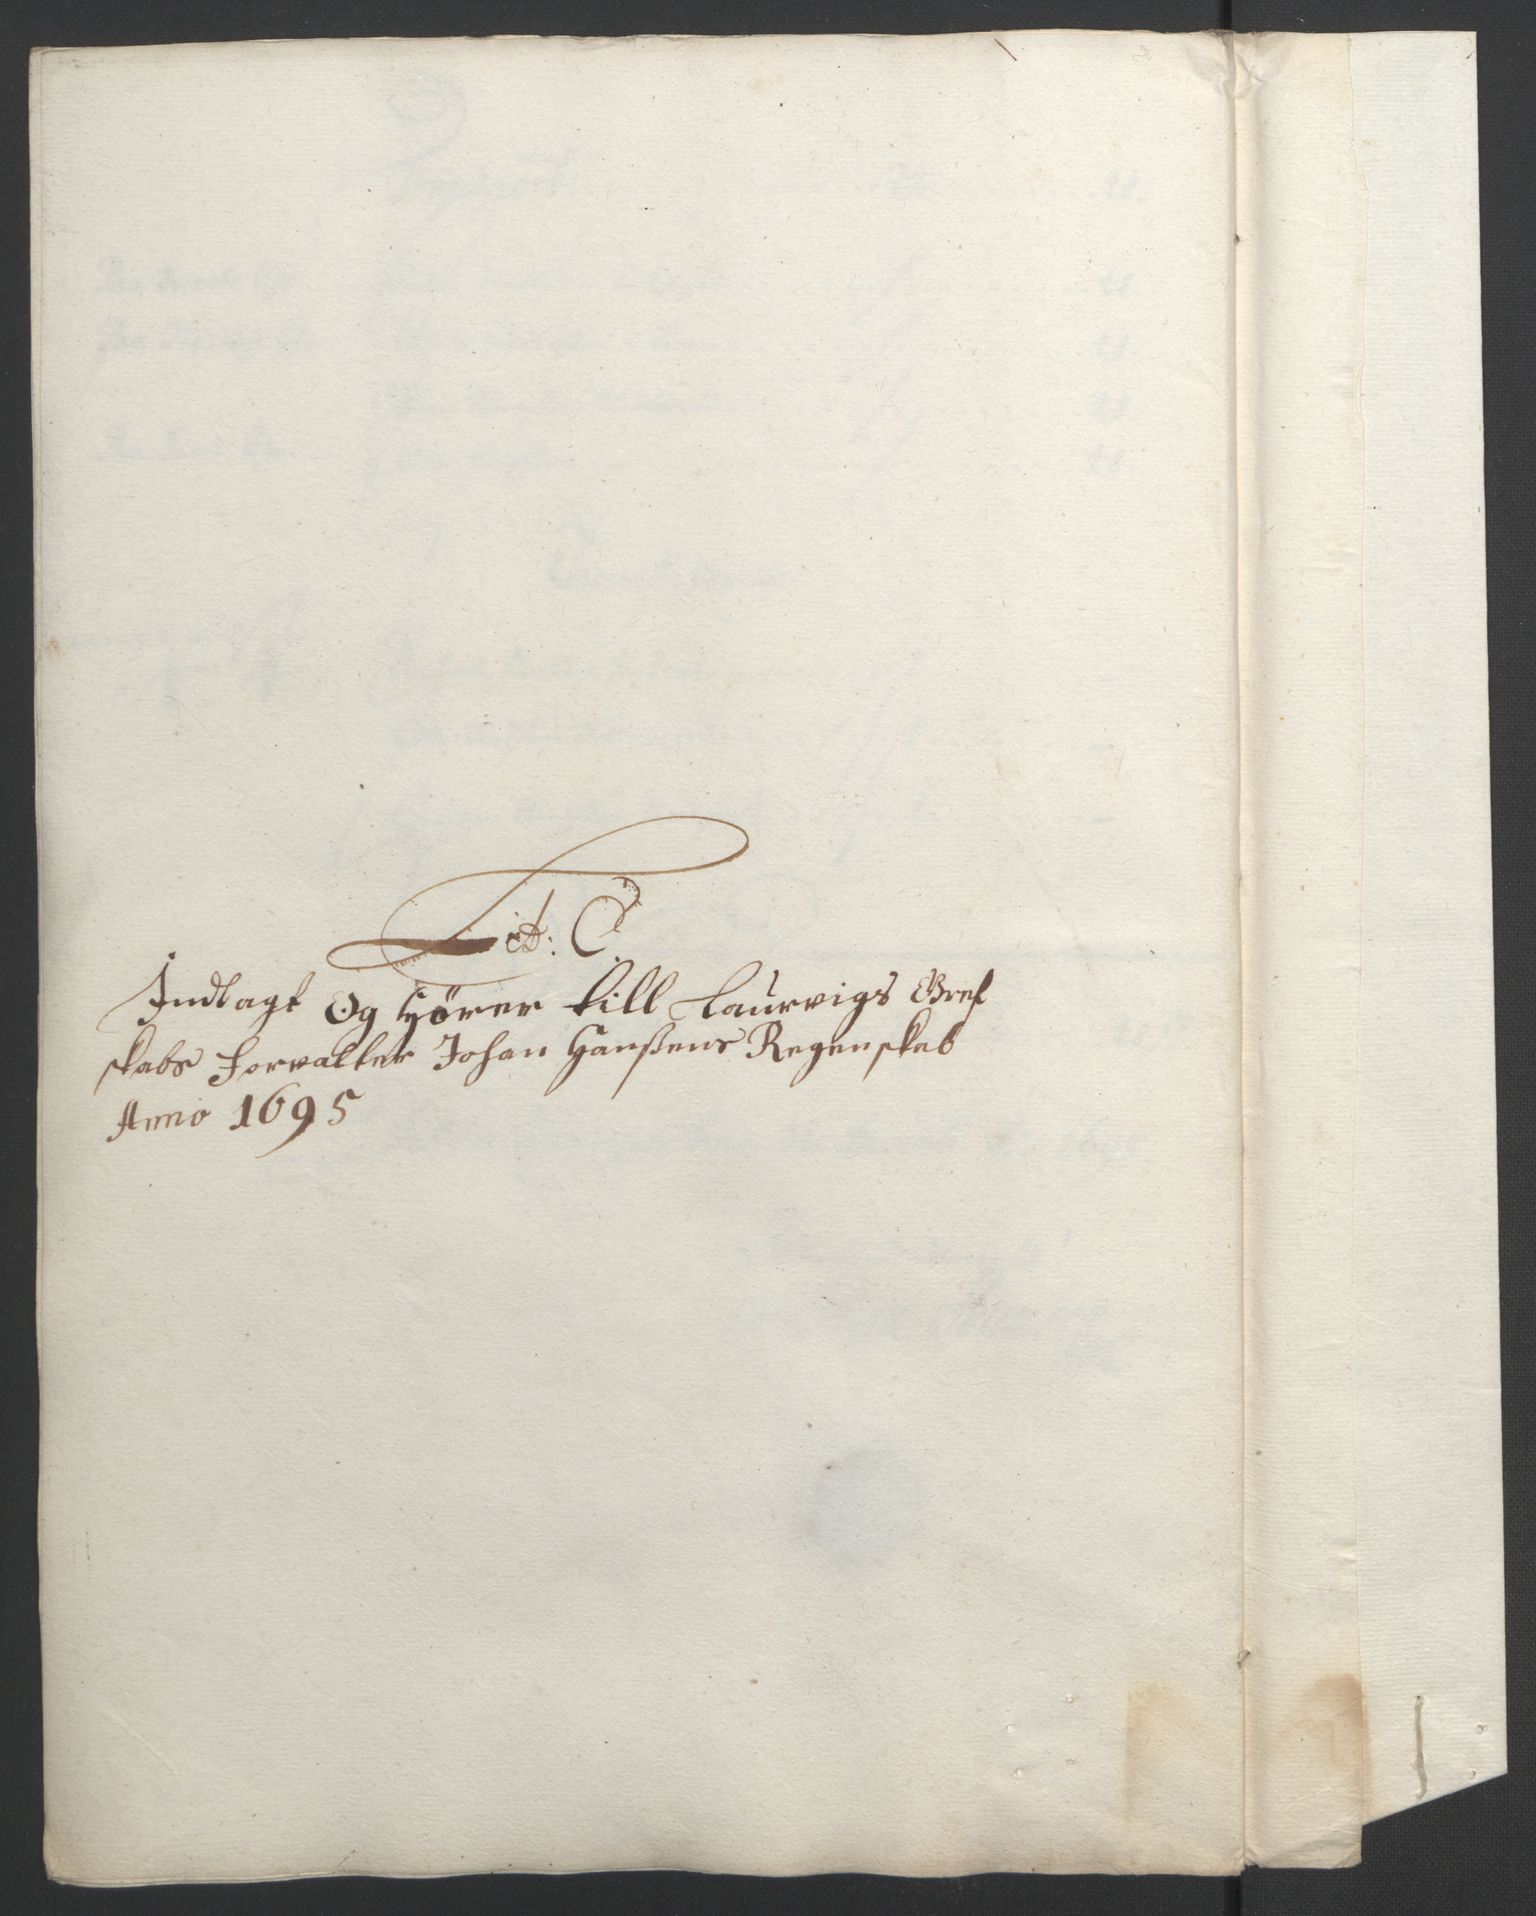 Lit: C
Indlagt Og Hörer till Laurvigs Gref
skabs Forvalter Johan Hanßens Regenskab
Anno 1695